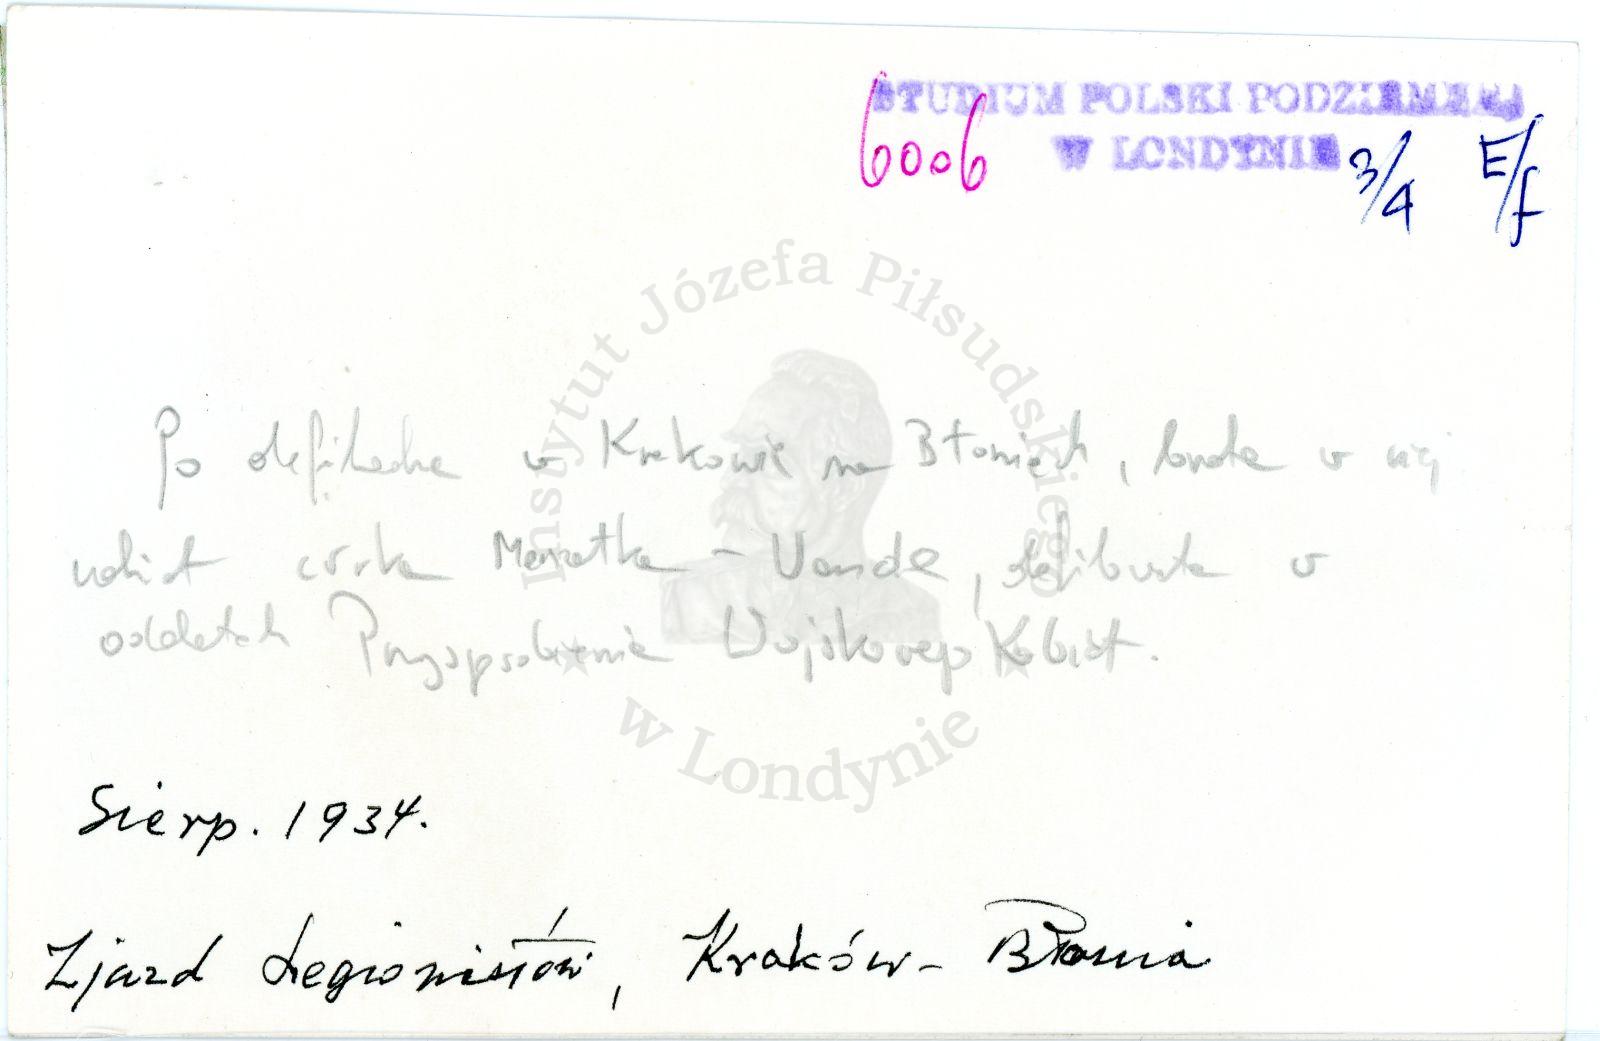 STUDIUM POLSKI PODZIEMNEJ
W LONDYNIE
6006 3/4 E/f
Instytut Józefa Piłsudskiego
w Londynie
Po defiladzie w Krakowie na Błoniach, brała w niej
udział córka Marszałka – Wanda, defilowała w
oddziałach Przysposobienia Wojskowego Kobiet.
Sierp. 1934.
Zjazd Legionistów, Kraków – Błonia